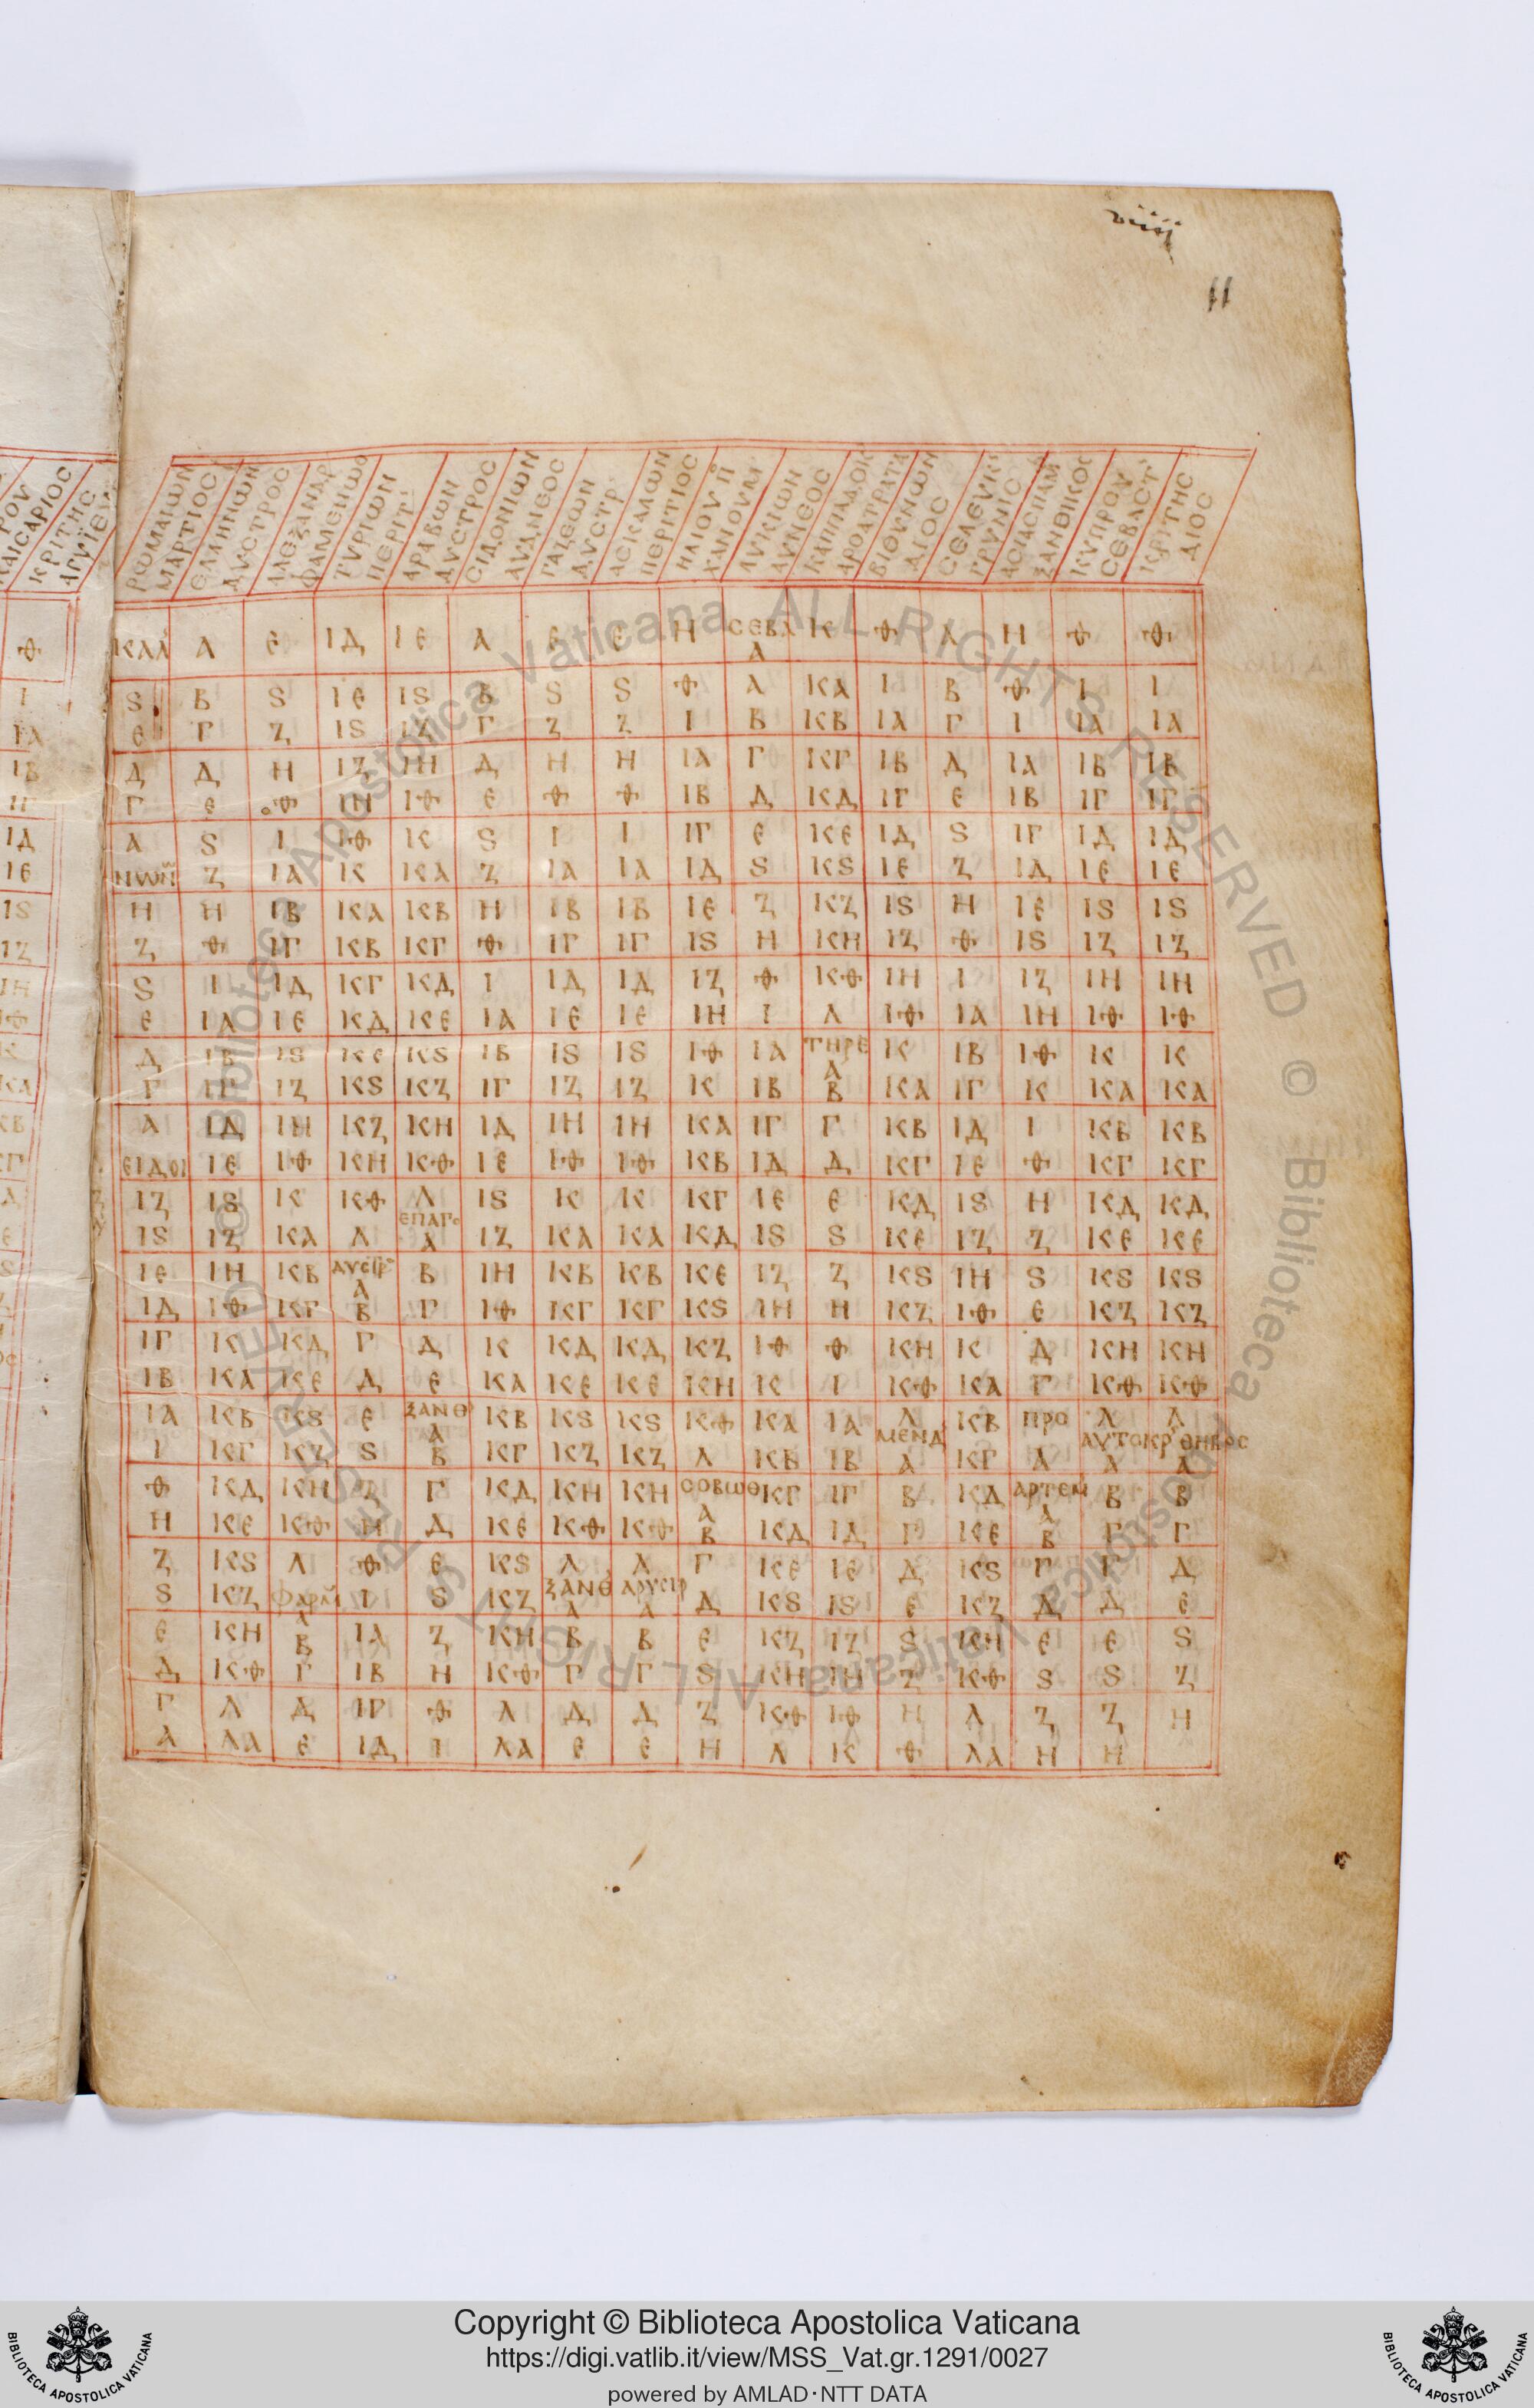 viiij
11
ΡωΜΑΙωΝ ΜΑΡΤΙΟC
ΕΛΛΗΝωΝ ΔΥCΤΡΟC
ΑΛΕΞΑΝΔΡ ΦΑΜΕΝΩΘ
ΤΥΡΙωΝ ΠΕΡΙΤ'
ΑΡΑΒωΝ ΔΥCΤΡΟC
CΙΔΟΝΙωΝ ΑΥΔΝΕΟC
ΓΑΖΕωΝ ΔΥCΤΡ'
ΑCΚΑΛωΝ ΠΕΡΙΤΙΟC
ΗΛΙΟΥ Π ΧΑΝΟΥΜ
ΛΥΚΙωΝ ΔΥΝΕΟC
ΚΑΠΠΑΔΟΚ ΑΡΟΑΤΡΑΤΑ
ΒΙΘΥΝωΝ ΔΙΟC
CΕΛΕΥΚ' ΓΡΥΝΙC
ΑCΙΑCΠΑΜ ΞΑΝΘΙΚΟC
ΚΥΠΡΟΥ CΕΒΑCΤ'
ΚΡΙΤΗC ΔΙΟC
ΚΑΛ Α Ε ΙΔ ΙΕ Α Ε Ε Η CΕΒΑ Α Κ Θ Α Η Θ Θ
S Β S ΙΕ ΙS Β S S Θ Α ΚΑ Ι Β Θ Ι Ι
Ε Γ Ζ ΙS ΙΖ Γ Ζ Ζ Ι Β ΚΒ ΙΑ Γ Ι ΙΑ ΙΑ
Δ Δ Η ΙΖ ΙΗ Δ Η Η ΙΑ Γ ΚΓ ΙΒ Δ ΙΑ ΙΒ ΙΒ
Γ Ε Θ ΙΗ ΙΘ Ε Θ Θ ΙΒ Δ ΚΔ ΙΓ Ε ΙΒ ΙΓ ΙΓ
Α S Ι ΙΘ Κ S Ι Ι ΙΓ Ε ΚΕ ΙΔ S ΙΓ ΙΔ ΙΔ
ΝωΝ Ζ ΙΑ Κ ΚΑ Ζ ΙΑ ΙΑ ΙΔ S ΚS ΙΕ Ζ ΙΔ ΙΕ ΙΕ
Η Η ΙΒ ΚΑ ΚΒ Η ΙΒ ΙΒ ΙΕ Ζ ΚΖ ΙS Η ΙΕ ΙS ΙS
Ζ Θ ΙΓ ΚΒ ΚΓ Θ ΙΓ ΙΓ ΙS Η ΚΗ ΙΖ Θ ΙS ΙΖ ΙΖ
S Ι ΙΔ ΚΓ ΚΔ Ι ΙΔ ΙΔ ΙΖ Θ ΚΘ ΙΗ Ι ΙΖ ΙΗ ΙΗ
Ε ΙΑ ΙΕ ΚΔ ΚΕ ΙΑ ΙΕ ΙΕ ΙΗ Ι Λ ΙΘ ΙΑ ΙΗ ΙΘ ΙΘ
Δ ΙΒ ΙS ΚΕ ΚS ΙΒ ΙS ΙS ΙΘ ΙΑ ΤΗΡΕ Α Κ ΙΒ ΙΘ Κ Κ
Γ ΙΓ ΙΖ ΚS ΚΖ ΙΓ ΙΖ ΙΖ Κ ΙΒ Β ΚΑ ΙΓ Κ ΚΑ ΚΑ
Α ΙΔ ΙΗ ΚΖ ΚΗ ΙΔ ΙΗ ΙΗ ΚΑ ΙΓ Γ ΚΒ ΙΔ Ι ΚΒ ΚΒ
ΕΙΔΟΙ ΙΕ ΙΘ ΚΗ ΚΘ ΙΕ ΙΘ ΙΘ ΚΒ ΙΔ Δ ΚΓ ΙΕ Θ ΚΓ ΚΓ
ΙΖ ΙS Κ ΚΘ Λ ΙS Κ Κ ΚΓ ΙΕ Ε ΚΔ ΙS Η ΚΔ ΚΔ
ΙS ΙΖ ΚΑ Λ ΕΠΑΓο Α ΙΖ ΚΑ ΚΑ ΚΔ ΙS S ΚΕ ΙΖ Ζ ΚΕ ΚΕ
ΙΕ ΙΗ ΚΒ ΔΥCΤΡο Α Β ΙΗ ΚΒ ΚΒ ΚΕ ΙΖ Ζ ΚS ΙΗ S ΚS ΚS
ΙΔ ΙΘ ΚΓ Β Γ ΙΘ ΚΓ ΚΓ ΚS ΙΗ Η ΚΖ ΙΘ Ε ΚΖ ΚΖ
ΙΓ Κ ΚΔ Γ Δ Κ ΚΔ ΚΔ ΚΖ ΙΘ Θ ΚΗ Κ Δ ΚΗ ΚΗ
ΙΒ ΚΑ ΚΕ Δ Ε ΚΑ ΚΕ ΚΕ ΚΗ Κ Ι ΚΘ ΚΑ Γ ΚΘ ΚΘ
ΙΑ ΚΒ ΚS Ε ΞΑΝΘ Α ΚΒ ΚS ΚS ΚΘ ΚΑ ΙΑ Λ ΚΒ ΠΡΟ Λ Λ
Ι ΚΓ ΚΖ S Β ΚΓ ΚΖ ΚΖ Λ ΚΒ ΙΒ ΜΕΝΔ Α ΚΓ Α ΑΥΤΟΚΡ Α ΘΗΒΡΟC Α
Θ ΚΔ ΚΗ Ζ Γ ΚΔ ΚΗ ΚΗ CΟΒωΘ Α ΚΓ ΙΓ Β ΚΔ ΑΡΤΕΜ Α Β Β
Η ΚΕ ΚΘ Η Δ ΚΕ ΚΘ ΚΘ Β ΚΔ ΙΔ Γ ΚΕ Β Γ Γ
Ζ ΚS Λ Θ Ε ΚS Λ Λ Γ ΚΕ ΙΕ Δ ΚS Γ Γ Δ
S ΚΖ ΦΑΡΜ Α Ι S ΚΖ ΞΑΝΘ Α ΔΡΥCΤΡ Α Δ ΚS ΙS Ε ΚΖ Δ Δ Ε
Ε ΚΗ Β ΙΑ Ζ ΚΗ Β Β Ε ΚΖ ΙΖ S ΚΗ Ε Ε S
Δ ΚΘ Γ ΙΒ Η ΚΘ Γ Γ S ΚΗ ΙΗ Ζ ΚΘ S S Ζ
Γ Λ Δ ΙΓ Θ Λ Δ Δ Ζ ΚΘ ΙΘ Η Λ Ζ Ζ Η
Α ΛΑ Ε ΙΔ Ι ΛΑ Ε Ε Η Λ Κ Θ ΛΑ Η Η
Copyright © Biblioteca Apostolica Vaticana
https://digi.vatlib.it/view/MSS_Vat.gr.1291/0027
powered by AMLAD·NTT DATA
BIBLIOTECA APOSTOLICA VATICANA
BIBLIOTECA APOSTOLICA VATICANA